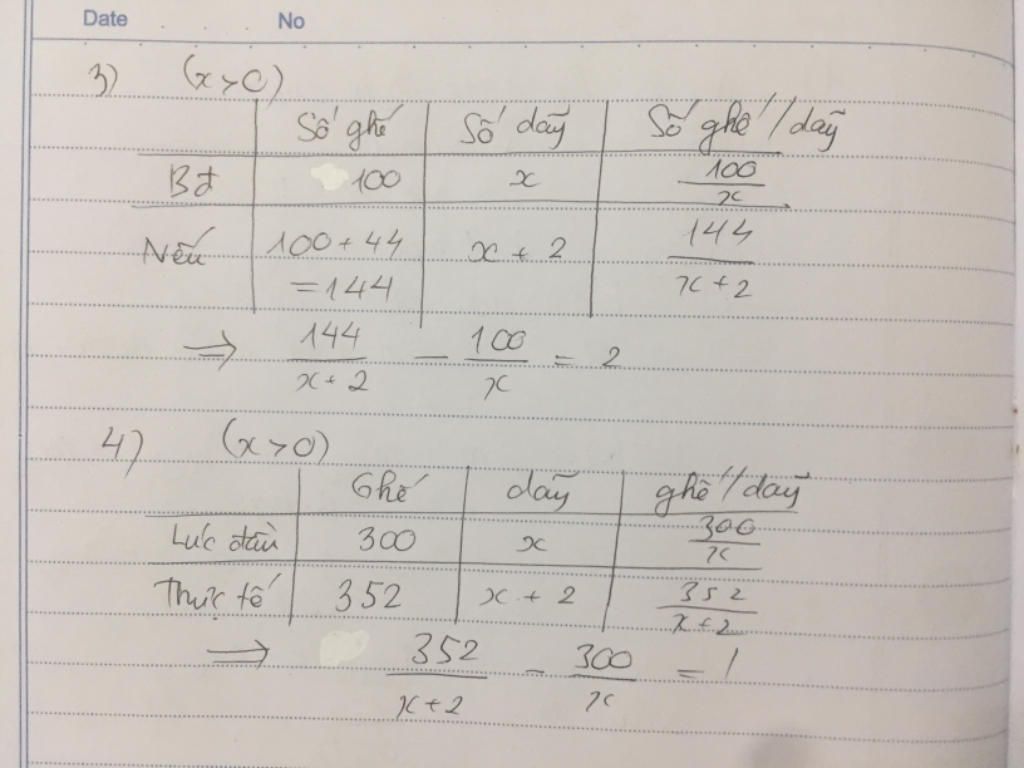 Date No
3) (x > 0)
Số ghế Số dãy Số ghế/dãy
Bđ 100 x 100/x
Nếu 100 + 44 = 144 x + 2 144/(x + 2)
⇒ 144/(x + 2) − 100/x = 2
4) (x > 0)
Ghế dãy ghế/dãy
Lúc đầu 300 x 300/x
Thực tế 352 x + 2 352/(x + 2)
⇒ 352/(x + 2) − 300/x = 1